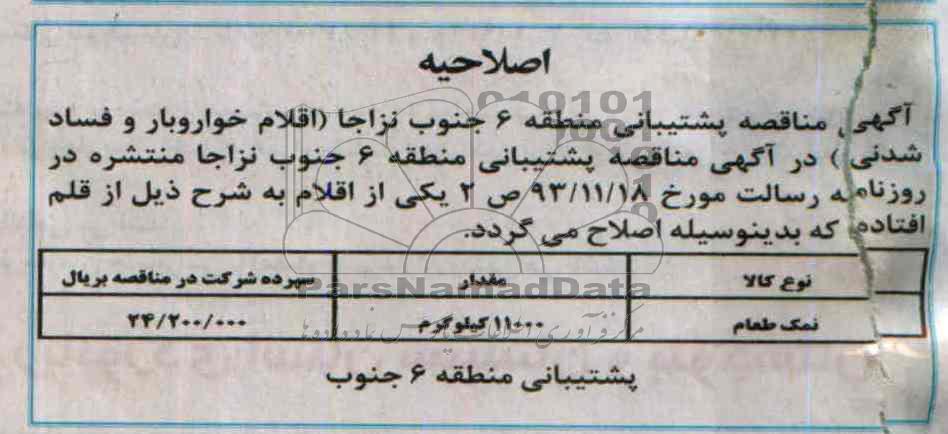 اصلاحیه
آگهی مناقصه پشتیبانی منطقه ۶ جنوب نزاجا (اقلام خواروبار و فساد
شدنی) در آگهی مناقصه پشتیبانی منطقه ۶ جنوب نزاجا منتشره در
روزنامه رسالت مورخ ۹۳/۱۱/۱۸ ص ۲ یکی از اقلام به شرح ذیل از قلم
افتاده که بدینوسیله اصلاح می گردد.
نوع کالا مقدار سپرده شرکت در مناقصه بریال
نمک طعام ۱۱۰۰۰ کیلوگرم ۲۴/۲۰۰/۰۰۰
پشتیبانی منطقه ۶ جنوب
ParsNamadData